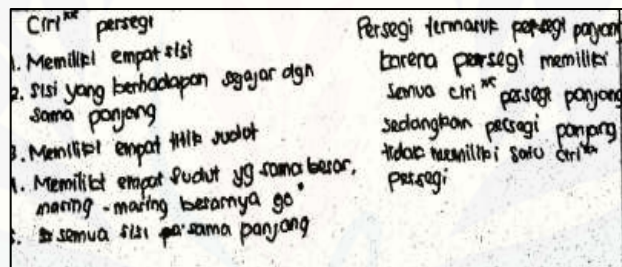 Ciri** persegi
1. Memiliki empat sisi
2. sisi yang berhadapan sejajar dgn
sama panjang
3. Memiliki empat titik sudut
4. Memiliki empat sudut yg sama besar,
masing - masing besarnya 90°
5. semua sisi sama panjang
Persegi termasuk persegi panjang
karena persegi memiliki
semua ciri** persegi panjang
sedangkan persegi panjang
tidak memiliki satu ciri**
persegi